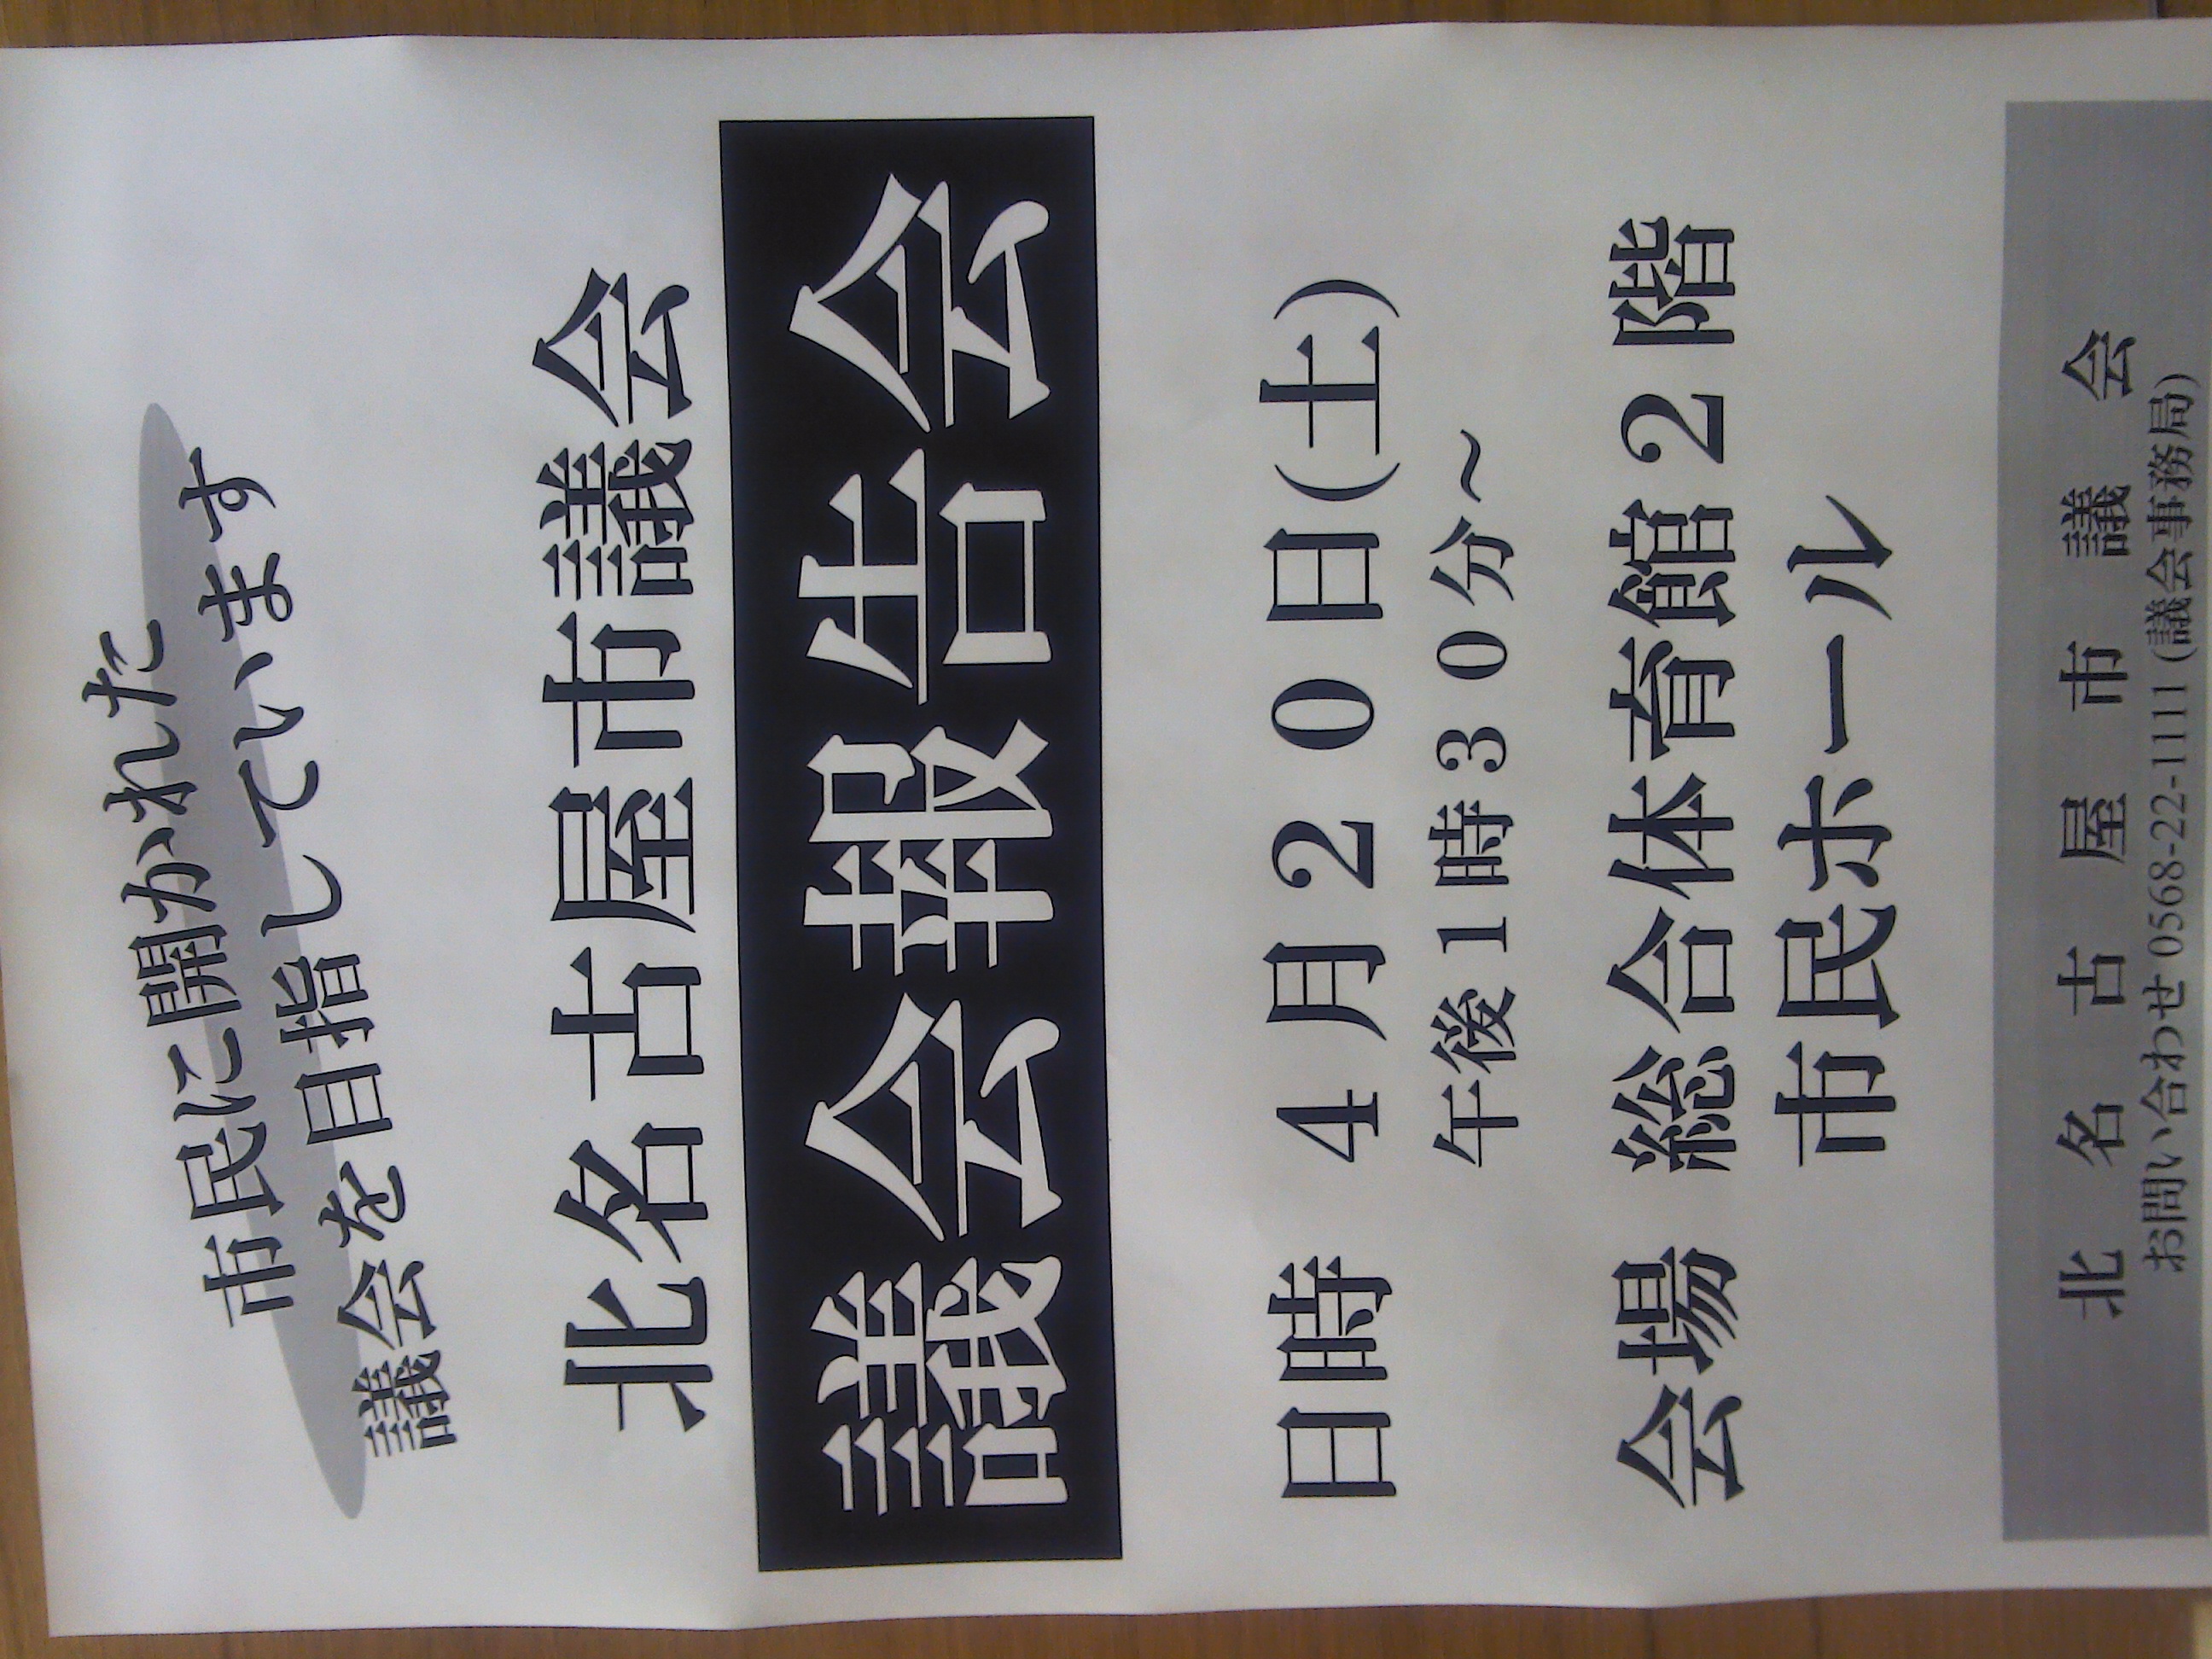 市民に開かれた
議会を目指しています
北名古屋市議会
議会報告会
日時 4月20日(土)
午後1時30分~
会場 総合体育館2階
市民ホール
北名古屋市議会
お問い合わせ 0568-22-1111 (議会事務局)